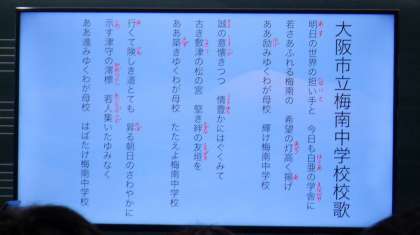 大阪市立梅南中学校校歌
明日の世界の担い手と　今日も白亜の学舎に
若さあふれる梅南の　希望の灯高く掲げ
ああ励みゆくわが母校　輝け梅南中学校
誠の意懐きつつ　情豊かにはぐくみて
古き敷津の松の宮　堅き絆の友垣を
ああ築きゆくわが母校　たたえよ梅南中学校
行くて険しき道とても　昇る朝日のさわやかに
示す津守の澪標　若人集いたゆみなく
ああ進みゆくわが母校　はばたけ梅南中学校